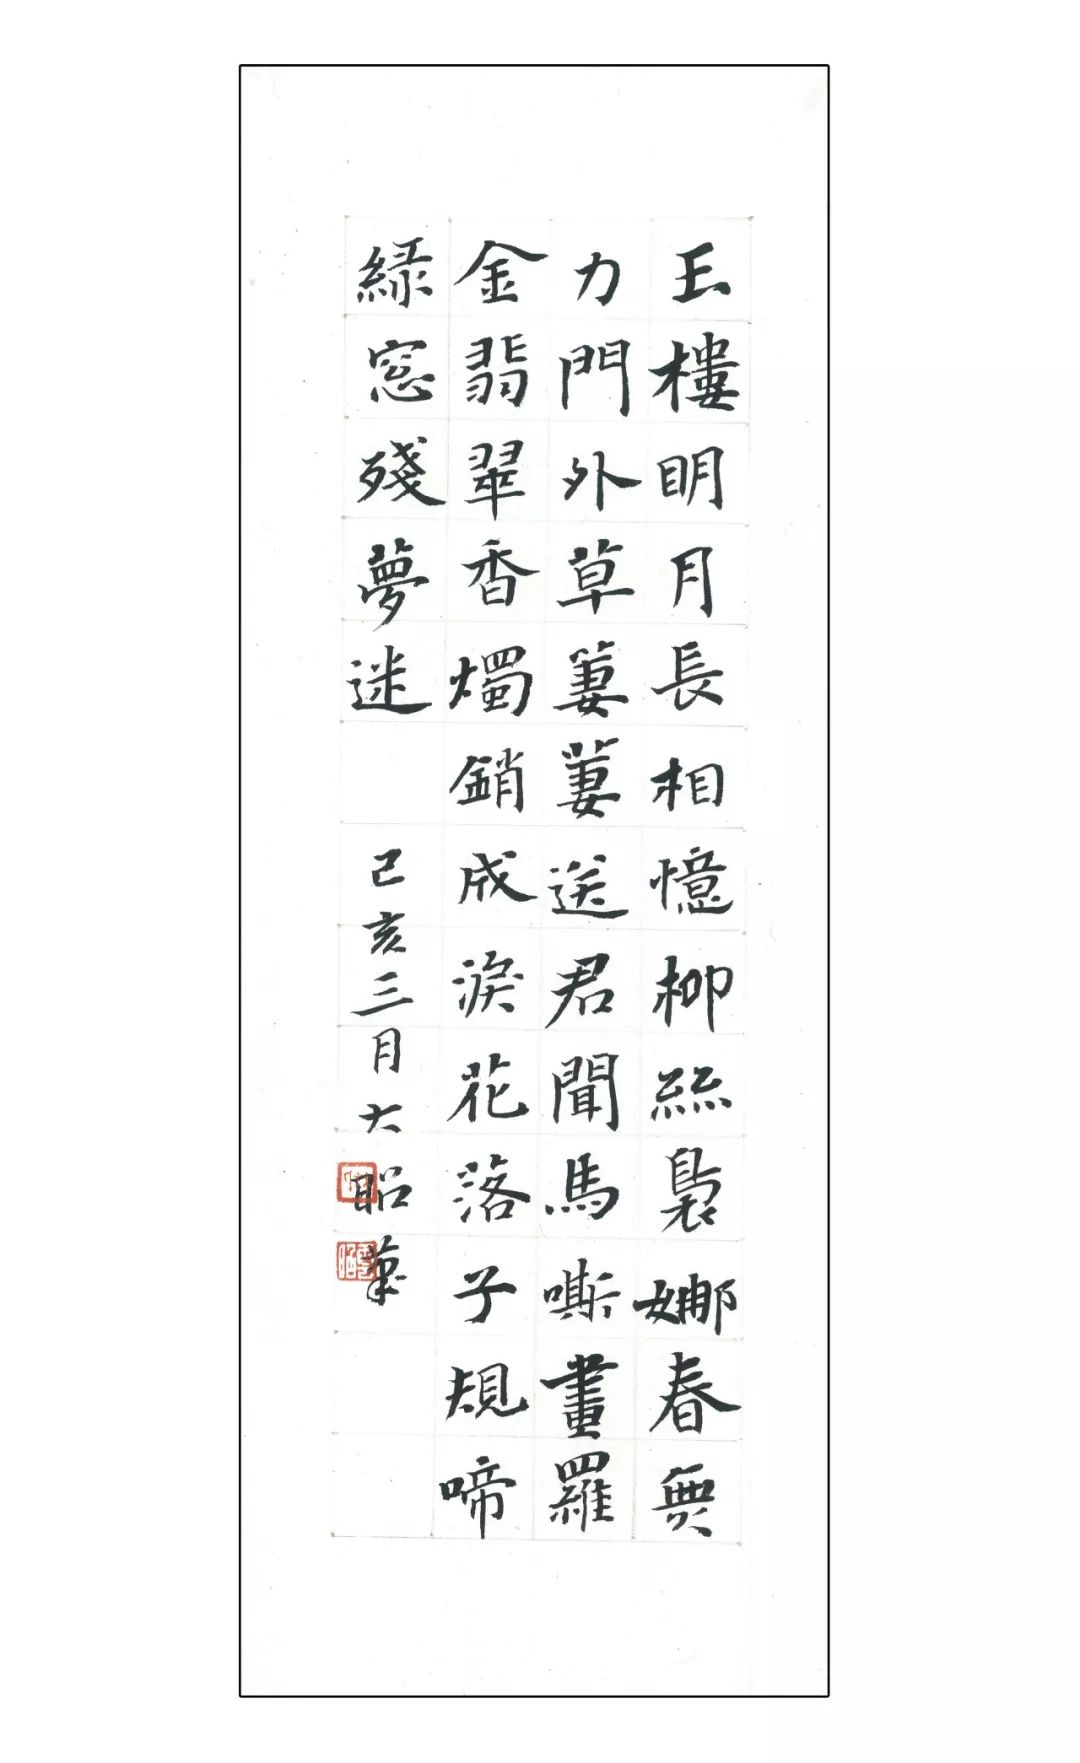 玉樓明月長相憶柳絲裊娜春無
力門外草萋萋送君聞馬嘶畫羅
金翡翠香燭銷成淚花落子規啼
綠窓殘夢迷
己亥三月大昭筆